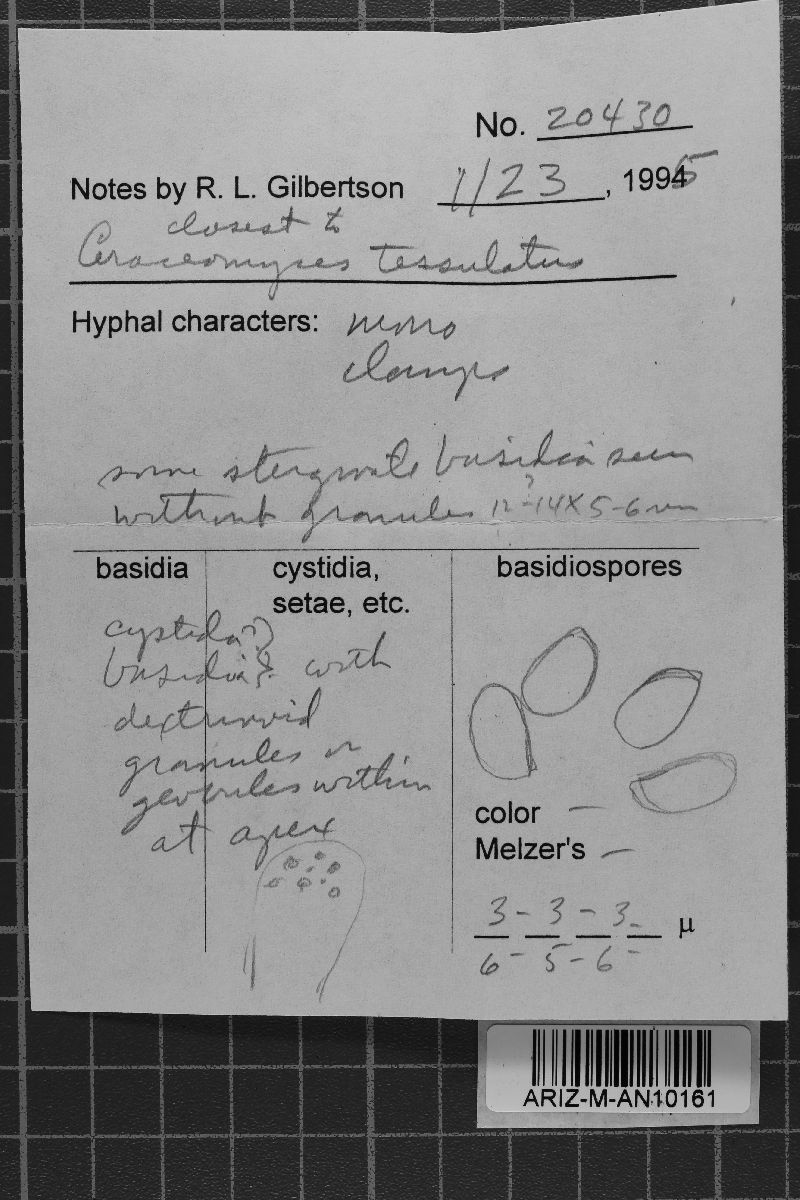 No. 20430
Notes by R. L. Gilbertson 1/23, 1995
closest to
Ceraceomyces tessulatus
Hyphal characters: mono
clamps
some sterigmate basidia seen
without granules 12-14 X 5-6 um
?
basidia
cystidia,
setae, etc.
basidiospores
cystidia?
basidia? with
dextrinoid
granules or
globules within
at apex
color —
Melzer's —
3 - 3 - 3 - µ
6 - 5 - 6 -
ARIZ-M-AN10161